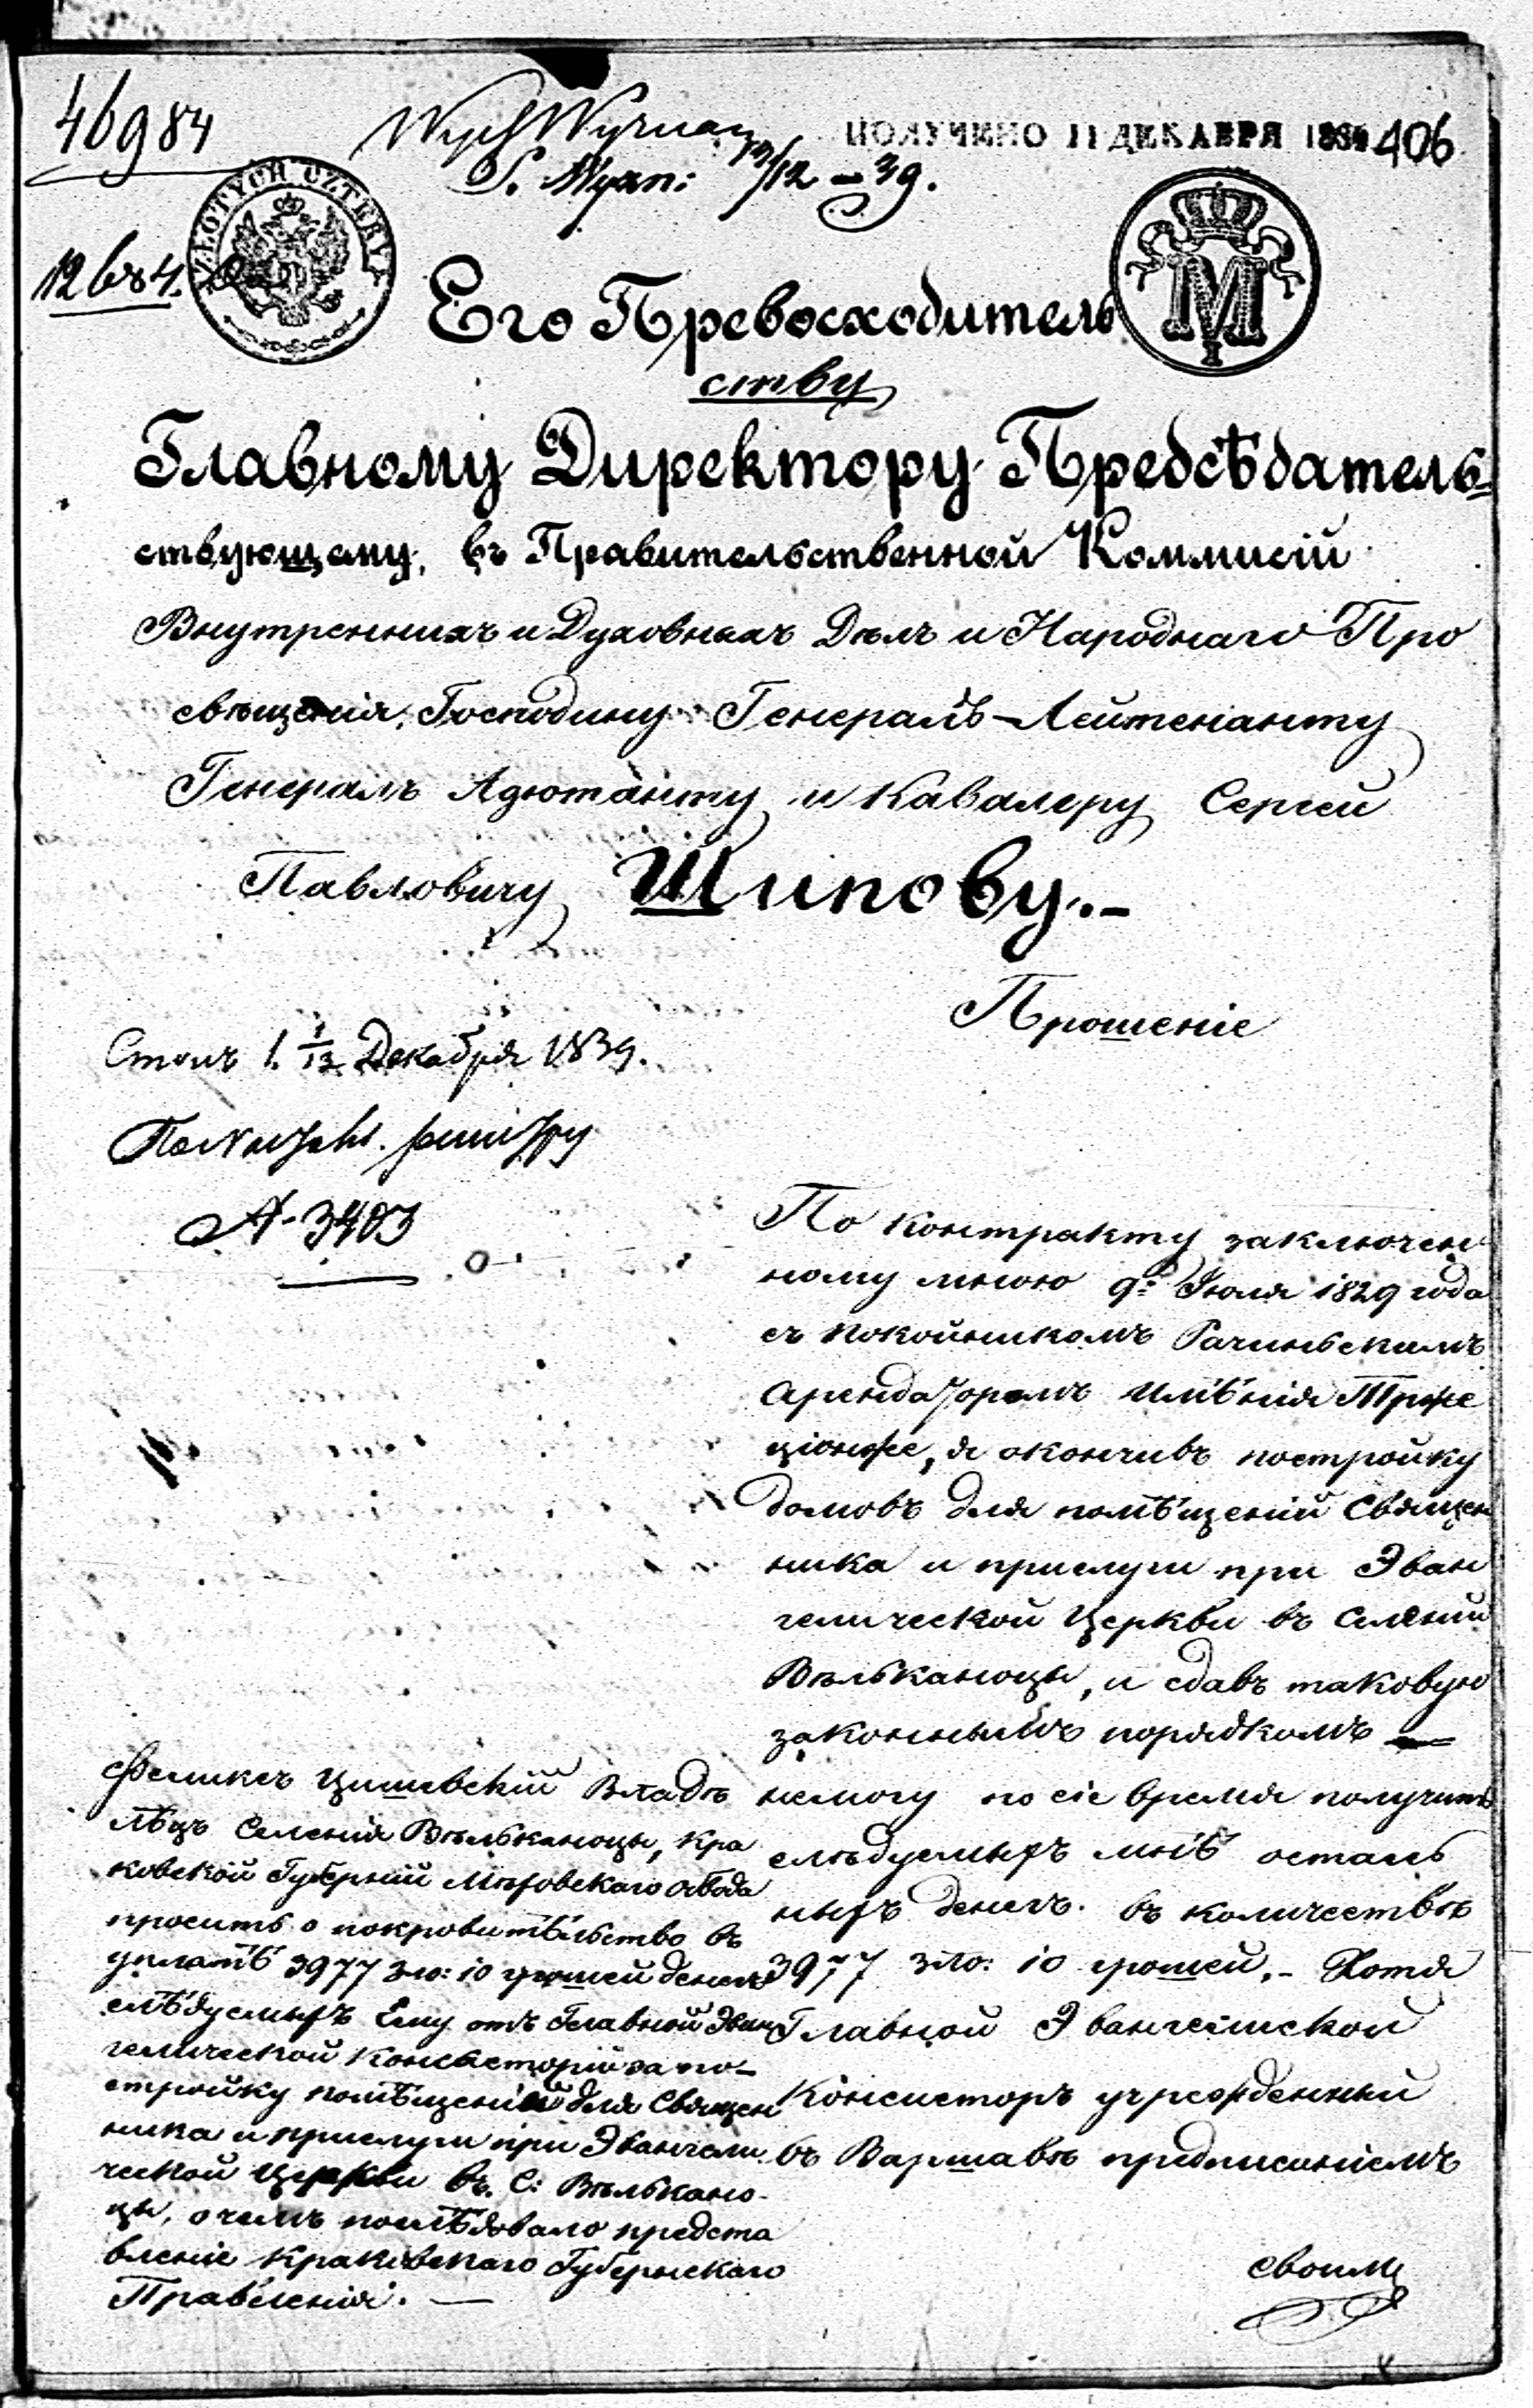 46984
ПОЛУЧЕНО 11 ДЕКАБРЯ 1839
406
12/12 – 39.
ZŁOTYCH CZTERY
Его Превосходитель
ству
Главному Директору Предсѣдатель=
ствующему, въ Правительственной Коммисій
Внутреннихъ и Духовныхъ Дѣлъ и Народнаго Про
свѣщенія, Господину Генералъ-Лейтенанту
Генералъ Адютанту и Кавалеру Сергею
Павловичу Шипову.-
Прошеніе
Столъ 1. 1/13 Декабря 1839.
А- 3403
По контракту заключен
ному мною 9го Іюля 1829 года
съ покойникомъ Рачинскимъ
Арендаторомъ Имѣнія Трже
ціонже, я окончивъ постройку
домовъ для помѣщеній Священ
ника и прислуги при Эван
гелической Церкви въ Селеній
Вѣльканоцы, и сдавъ таковую
законнымъ порядкомъ —
немогу по сіе время получить
слѣдуемыхъ мнѣ осталь
ныхъ денегъ. въ количествѣ
3977 зло: 10 грошей.- Хотя
Главной Эвангелиской
Консисторъ учрежденный
въ Варшавѣ предписаніемъ
своимъ
Феликсъ Цишевскій Владѣ
лѣцъ Селенія Вѣльканоцы, Кра
ковской Губерній Мѣховскаго Обвода
проситъ о покровительство въ
уплатѣ 3977 зло: 10 грошей денегъ
слѣдуемыхъ Ему отъ Главной Эван
гелической Консисторій за по-
стройку помѣщеній для Священ
ника и прислуги при Эвангели
ческой Церкви въ С: Вѣлькано-
цы, о чемъ послѣдовало предста
вленіе Краковскаго Губернскаго
Правленія. —